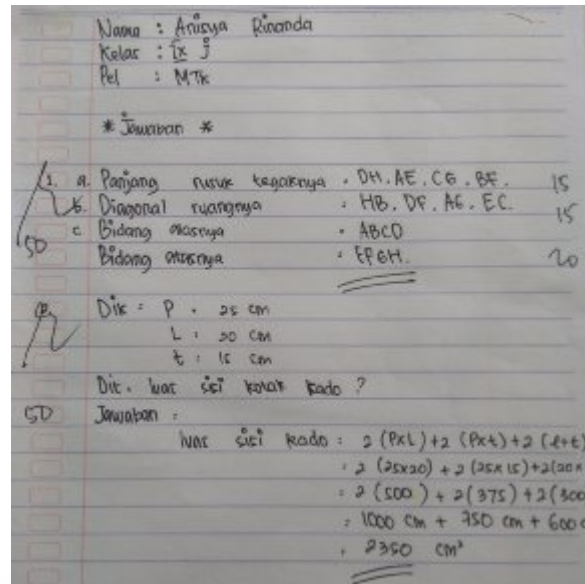 Nama : Anisya Rinanda
Kelas : IX j
Pel : MTK
* Jawaban *
1. a. Panjang rusuk tegaknya : DH, AE, CG, BF. 15
b. Diagonal ruangnya : HB, DF, AG, EC. 15
c Bidang alasnya : ABCD
50
Bidang atasnya : EFGH. 20
2. Dik : P : 25 cm
L : 20 cm
t : 15 cm
Dit. luas sisi kotak kado ?
50 Jawaban :
luas sisi kado : 2 (PxL) + 2 (Pxt) + 2 (l+t)
: 2 (25x20) + 2 (25x15) + 2(20x
: 2 (500) + 2 (375) + 2 (300
: 1000 cm + 750 cm + 600 c
: 2350 cm²